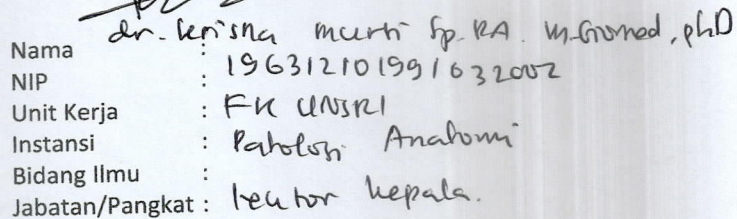 Nama : dr. Krisna Murti Sp.PA. M.Biomed, phD
NIP : 196312101991032002
Unit Kerja : FK UNSRI
Instansi : Patologi Anatomi
Bidang Ilmu :
Jabatan/Pangkat : lektor kepala.